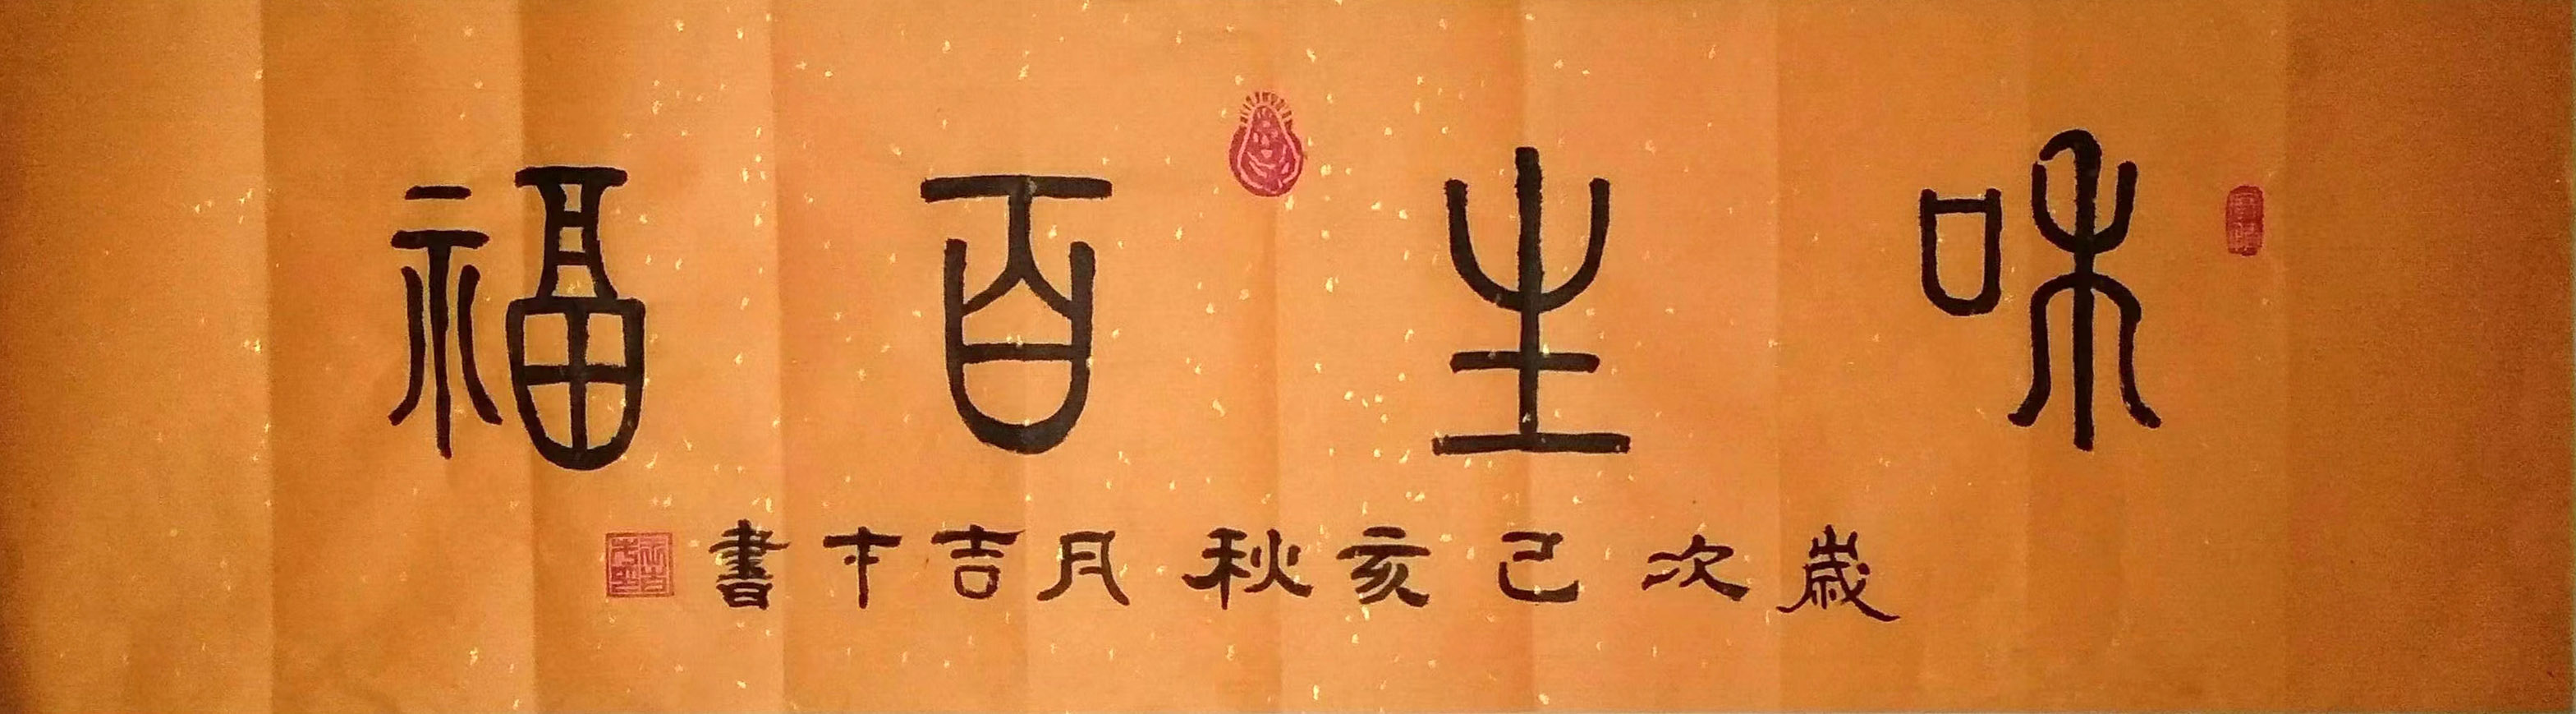 咊生百福
歲次己亥秋月吉中書